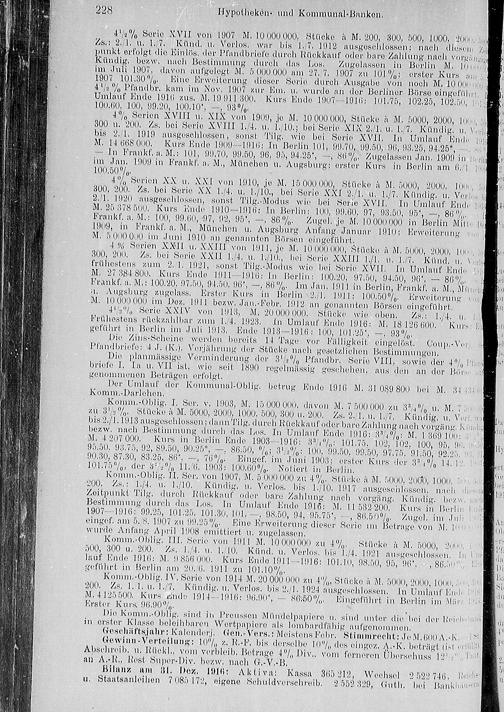 228 Hypotheken- und Kommunal-Banken.
4½% Serie XVII von 1907 M. 10 000 000, Stücke à M. 200, 300, 500, 1000,
Zs.: 2./1. u. 1./7. Künd. u. Verlos. war bis 1./7. 1912 ausgeschlossen; nach diesem
punkt erfolgt die Einlös. der Pfandbriefe durch Rückkauf oder bare Zahlung nach
Kündig. bezw. nach Bestimmung durch das Los. Zugelassen in Berlin M. 10
im Juli 1907, davon aufgelegt M. 5 000 000 am 27./7. 1907 zu 101%; erster Kurs
1907 101.30%. Eine Erweiterung dieser Serie durch Ausgabe von noch M. 10 000
4½% Pfandbr. kam im Nov. 1907 zur Em. u. wurde an der Berliner Börse eingeführt.
Umlauf Ende 1916 zus. M. 19 911 300. Kurs Ende 1907—1916: 101.75, 102.25, 102.50,
100.60, 100, 99.20, 100.10*, —, 93%.
4% Serien XVIII u. XIX von 1909, je M. 10 000 000, Stücke à M. 5000, 2000,
300 u. 200. Zs. bei Serie XVIII 1./4. u. 1./10.; bei Serie XIX 2./1. u. 1./7. Künd. u.
bis 2./1. 1919 ausgeschlossen, sonst Tilg. wie bei Serie XVII. In Umlauf Ende
M. 14 668 000. Kurs Ende 1909—1916: In Berlin 101, 99.70, 99.50, 96, 93.25, 94.25*, —
— In Frankf. a. M.: 101, 99.70, 99.50, 96, 95, 94.25*, —, 86%. Zugelassen Jan. 1909 in
im Jan. 1909 in Frankf. a. M., München u. Augsburg: erster Kurs in Berlin am 6./
100.50%.
4% Serien XX u. XXI von 1910, je M. 15 000 000, Stücke à M. 5000, 2000,
300, 200. Zs. bei Serie XX 1./4. u. 1./10., bei Serie XXI 2./1. u. 1./7. Kündig. u.
2./1. 1920 ausgeschlossen, sonst Tilg.-Modus wie bei Serie XVII. In Umlauf Ende
M. 25 378 500. Kurs Ende 1910—1916: In Berlin: 100, 99.60, 97, 93.50, 95*, —, 86%.
Frankf. a. M.: 100, 99.60, 97, 92, 95*, —, 86%. Zugel. je M. 10 000 000 in Berlin Mitte
1909, in Frankf. a. M., München u. Augsburg Anfang Januar 1910: Erweiterung
M. 5 000 000 im Juni 1910 an genannten Börsen eingeführt.
4% Serien XXII u. XXIII von 1911, je M. 10 000 000, Stücke à M. 5000, 2000,
300, 200. Zs. bei Serie XXII 1./4. u. 1./10., bei Serie XXIII 1./1. u. 1./7. Künd. u.
frühestens zum 2./1. 1921, sonst Tilg.-Modus wie bei Serie XVII. In Umlauf Ende
M. 27 384 800. Kurs Ende 1911—1916: In Berlin: 100.20, 97.50, 94.50, 96*, —, 86%.
Frankf. a. M.: 100.20, 97.50, 94.50, 96*, —, 86%. Im Jan. 1911 in Berlin, Frankf. a. M.,
u. Augsburg zugelass. Erster Kurs in Berlin 2./1. 1911: 100.50%. Erweiterung
M. 10 000 000 im Dez. 1911 bezw. Jan.-Febr. 1912 an genannten Börsen eingeführt.
4½% Serie XXIV von 1913, M. 20 000 000. Stücke wie oben. Zs.: 1./4. u.
Frühestens rückzahlbar zum 1./4. 1923. In Umlauf Ende 1916: M. 18 126 600. Kurs
geführt in Berlin im Juli 1913. Ende 1913—1916: 100, 101.25*, —, 93%.
Die Zins-Scheine werden bereits 14 Tage vor Fälligkeit eingelöst. Coup.-Ver
Pfandbriefe: 4 J. (K.). Verjährung der Stücke nach gesetzlichen Bestimmungen.
Die planmässige Verminderung der 3½% Pfandbr. Serie VIII, sowie der 4%
briefe I. Ia u. VII ist, wie seit 1890 regelmässig geschehen, aus den an der Börse
genommenen Beträgen erfolgt.
Der Umlauf der Kommunal-Oblig. betrug Ende 1916 M. 31 089 800 bei M. 34
Komm.-Darlehen.
Komm.-Oblig. I. Ser. v. 1903, M. 15 000 000, davon M. 7 500 000 zu 3¾% u. M. 7
zu 3½%. Stücke à M. 5000, 2000, 1000, 500, 300 u. 200. Zs. 2./1. u. 1./7. Kündig. u. Ver
bis 2./1. 1913 ausgeschlossen; dann Tilg. durch Rückkauf oder bare Zahlung nach vorgäng.
bezw. nach Bestimmung durch das Los. In Umlauf Ende 1916: 3¾%: M. 1 369 100
M. 4 207 000. Kurs in Berlin Ende 1903—1916: 3¾%: 101.75, 102, 102, 100, 95, 96
95.50, 93.75, 92, 89.50, 90.25*, —, 86.50%; 3½%: 100, 99.50, 99.50, 97.75, 91.50, 92.25,
90.30, 87.30, 83.25, 86*, —, 76%. Eingef. im Juni 1903; erster Kurs der 3¾% 14./12.
101.75%, der 3½% 11./6. 1903: 100.60%. Notiert in Berlin.
Komm.-Oblig. II. Ser. von 1907, M. 5 000 000 zu 4%. Stücke à M. 5000, 2000, 1000,
200. Zs.: 1./4. u. 1./10. Kündig. u. Verlos. bis 1./10. 1917 ausgeschlossen, nach
Zeitpunkt Tilg. durch Rückkauf oder bare Zahlung nach vorgäng. Kündig. bezw.
Bestimmung durch das Los. In Umlauf Ende 1916: M. 11 532 200. Kurs in Berlin
1907—1916: 99.25, 101.25, 101.30, 101, —, 98.50, 94, 95.75*, —, 86.50%. Zugel. im Juli
eingef. am 5./8. 1907 zu 99.25%. Eine Erweiterung dieser Serie um Betrage von M. 10
wurde Anfang April 1908 emittiert u. zugelassen.
Komm.-Oblig. III. Serie von 1911 M. 10 000 000 zu 4%. Stücke à M. 5000, 2000,
500, 300 u. 200. Zs. 1./4. u. 1./10. Künd. u. Verlos. bis 1./4. 1921 ausgeschlossen. In
lauf Ende 1916: M. 9 856 000. Kurs Ende 1911—1916: 101.10, 98.50, 95, 96*, , 86.50%
geführt in Berlin am 20./6. 1911 zu 101.10%.
Komm.-Oblig. IV. Serie von 1914 M. 20 000 000 zu 4%, Stücke à M. 5000, 2000, 1000,
200. Zs. 1./1. u. 1./7. Kündig. u. Verlos. bis 2./1. 1924 ausgeschlossen. In Umlauf Ende
M. 4 125 500. Kurs Ende 1914—1916: 96.90*, —, 86.50%. Eingeführt in Berlin im März
Erster Kurs, 96.90%.
Die Komm.-Oblig. sind in Preussen Mündelpapiere u. sind unter die bei der Reichs
in erster Klasse beleihbaren Wertpapiere als lombardfähig aufgenommen.
Geschäftsjahr: Kalenderj. Gen.-Vers.: Meistens Febr. Stimmrecht: Je M. 600 A.-K.
Gewinn-Verteilung: 10% z. R.-F. bis derselbe 10% des eingez. A.-K. beträgt (ist erfüllt)
Abschreib. u. Rückl., vom verbleib. Betrage 4% Div., vom ferneren Überschuss 12½%
an A.-R., Rest Super-Div. bezw. nach G.-V.-B.
Bilanz am 31. Dez. 1916: Aktiva: Kassa 365 212, Wechsel 2 522 746,
u. Staatsanleihen 7 085 172, eigene Schuldverschreib. 2 552 329, Guth. bei